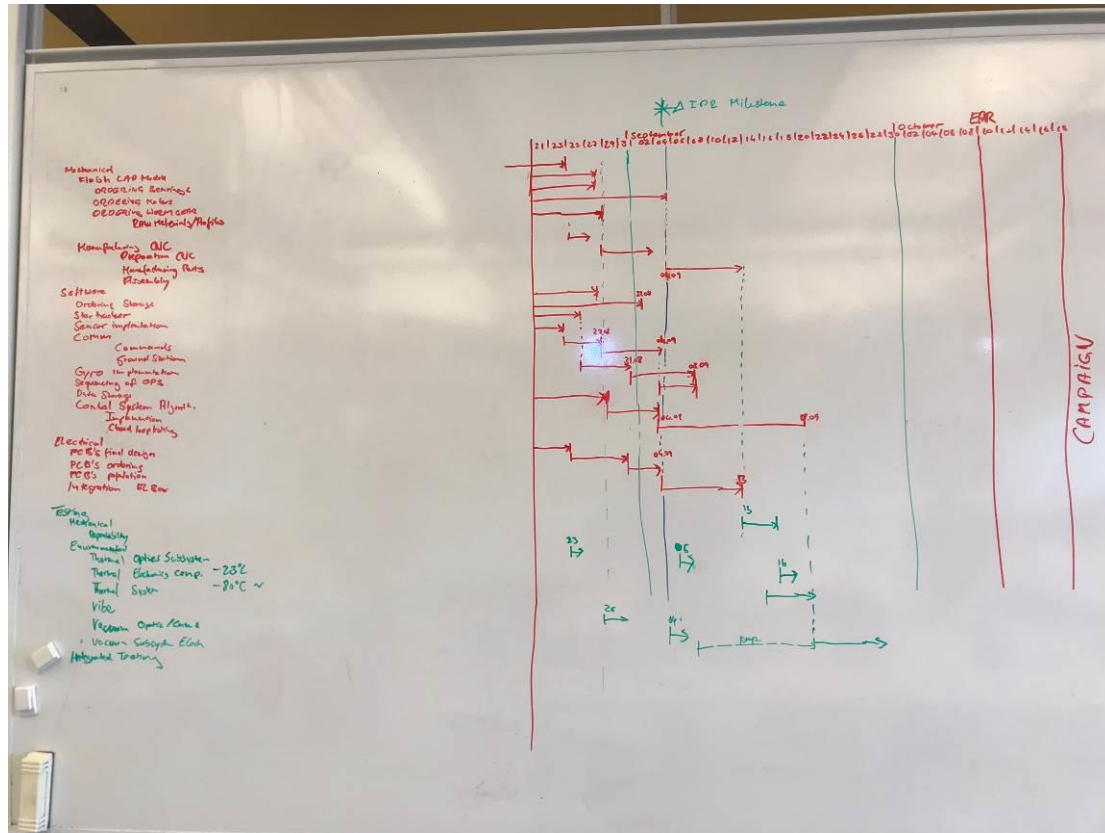 IPR Milestone
EAR
September
October
21 23 25 27 29 31 02 04 06 08 10 12 14 16 18 20 22 24 26 28 30 02 04 06 08 10 12 14 16 18
Mechanical
Finish CAD Model
ORDERING Bearings
ORDERING Motors
ORDERING WORM GEAR
RAW Materials/Profiles
Manufacturing CNC
Preparation CNC
Manufacturing Parts
Assembly
04.09
Software
Ordering Storage
Startracker
Sensor implmtation
Comm
Commands
Ground Station
Gyro Implementation
Sequencing of OPS
Data Storage
Control System Algorith.
Implmention
Closed loop testing
31.08
04.09
08.09
04.09
CAMPAIGN
Electrical
PCB's final design
PCB's ordering
PCB's population
Integration El Box
04.09
13
Testing
Mechanical
Environmental
Thermal Optics Subsystem
Thermal Electronics comp. -23°C
Thermal System -80°C ~
Vibe
Vacuum Optics
Vacuum Subsystem
Integrated Testing
15
23
06
16
26
04